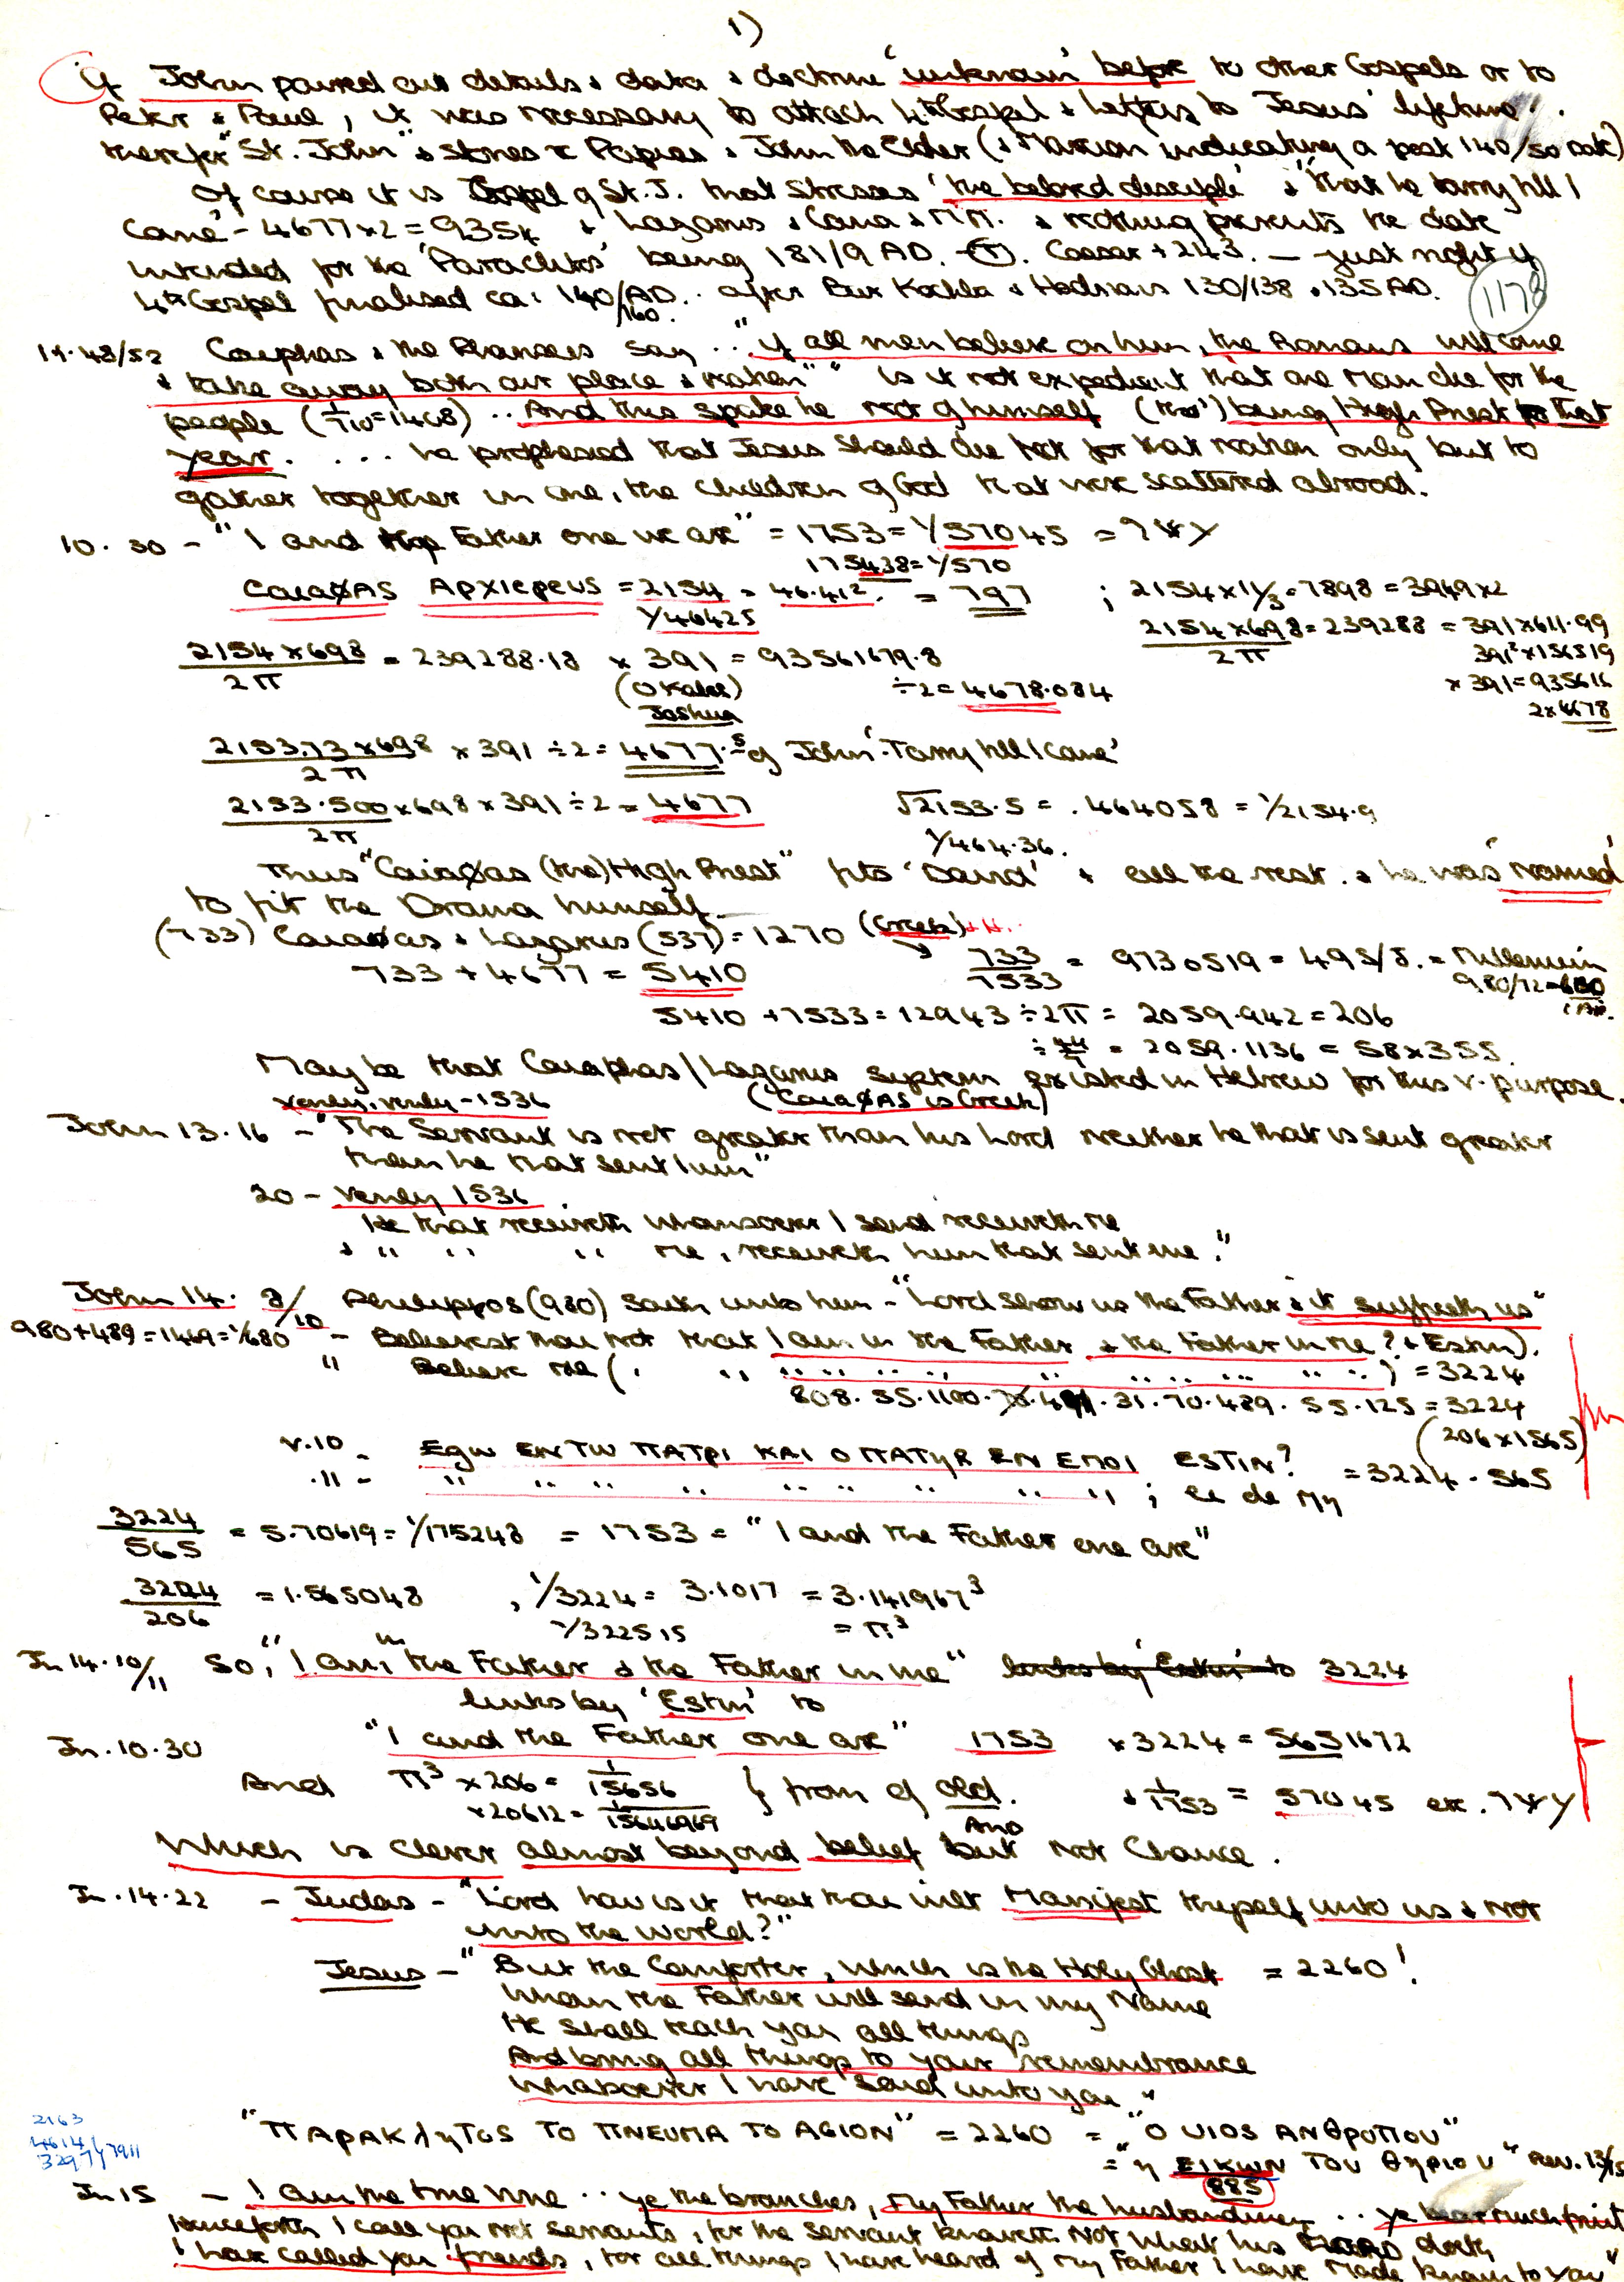 1)
If John poured out details & data & doctrine 'unknown' before to other Gospels or to
Peter & Paul, it was necessary to attach 4th Gospel & Letters to Jesus' lifetime.
therefor "St. John" & stories re Papias & John the Elder (& Marcion indicating a post 140/50 date)
Of course it is Gospel of St. J. that stresses 'the beloved disciple' & "that he tarry till I
Come" - 4677 x 2 = 9354 & Lazarus & Cana & M.M. & nothing prevents the date
intended for the 'Paracletos' being 181/9 AD. Caesar + 243. — just right if
4th Gospel finalised ca: 140/160 AD. after Bar Kochba & Hadrian's 130/138 & 135 AD.
1178
11.48/52 Caiphas & the Pharisees say .. "if all men believe on him, the Romans will come
& take away both our place & nation" " is it not expedient that one man die for the
people (1/710 = 1408) .. And this spake he not of himself (but) being High Priest for that
year. . . . he prophesied that Jesus should die not for that nation only but to
gather together in one, the children of God that were scattered abroad.
10.30 - "I and the Father one we are" = 1753 = 1/57045
175438 = 1/570
CaiaØAS Apxiepeus = 2154 = 46.41². = 797 ; 2154 x 11/3 = 7898 = 3949 x 2
1/46425
2154 x 698 / 2π = 239288.18 x 391 = 93561679.8
(O Kalos)
Joshua
÷ 2 = 4678.084
2154 x 698 / 2π = 239288 = 391 x 611.99
391² x 156519
x 391 = 935616
2 x 4678
2153.73 x 698 / 2π x 391 ÷ 2 = 4677.5 of John 'Tarry till I come'
2153.500 x 698 x 391 ÷ 2 = 4677
2π
√2153.5 = .464058 = 1/2154.9
1/464.36.
Thus "CaiaØas (the) High Priest" fits 'David' & all the rest. & he was 'Named'
to fit the Drama himself.
(733) CaiaØas & Lazarus (537) = 1270 (Greek)
733 + 4677 = 5410
733 / 7533 = 9730519 = 495/8. = Millennium
5410 + 7533 = 12943 ÷ 2π = 2059.942 = 206
÷ 44/7 = 2059.1136 = 58 x 355.
May be that Caiaphas/Lazarus system existed in Hebrew for this v. purpose.
(CaiaØAS is Greek)
verily, verily - 1536
John 13.16 - "The Servant is not greater than his Lord neither he that is sent greater
than he that sent him"
20 - Verily 1536
He that receiveth whomsoever I send receiveth me
& " " " me, receiveth him that sent me."
John 14. 8/10 Philippos (980) saith unto him - "Lord show us the Father & it sufficeth us"
980 + 489 = 1469 = 1/680 - Believest thou not that I am in the Father & the Father in me? & Estin).
" Believe me ( " " " " " " " " ) = 3224
808. 55. 1100. 491. 31. 70. 489. 55. 125 = 3224
(206 x 1565)
v.10 - Egw EN TW ΠATρI KAI O ΠATyR EN EMOI ESTIN? = 3224 . 565
.11 - " " " " " " " " " ; ei de My
3224 / 565 = 5.70619 = 1/175248 = 1753 = "I and the Father one are"
3224 / 206 = 1.565048 , 1/3224 = 3.1017 = 3.141967³
1/322515 = π³
Jn 14.10/11 So, "I am in the Father & the Father in me" 3224
links by 'Estin' to
Jn. 10.30 "I and the Father one are" 1753 x 3224 = 5651672
And π³ x 206 = 1/15656 } from of old. & 1/1753 = 57045 etc.
x 20612 = 1/15646969
And
Which is Clever almost beyond belief but not Chance.
Jn. 14.22 - Judas - "Lord how is it that thou wilt Manifest thyself unto us & not
unto the world?"
Jesus - "But the Comforter, which is the Holy Ghost = 2260!
whom the Father will send in my Name
He shall teach you all things
And bring all things to your remembrance
Whatsoever I have said unto you"
"ΠAρAKλyTOS TO ΠNEUMA TO AGION" = 2260 = "O UIOS ANθρωΠOU"
= "y EIKWN TOU θyρIOU" Rev. 13/15
885
2163
4614
3297 / 7911
Jn 15 - I am the true Vine .. ye the branches, My Father the husbandman .. ye bear much fruit
Henceforth I call you not servants, for the servant knoweth not what his Lord doeth
I have called you friends, for all things I have heard of my Father I have made known to you"